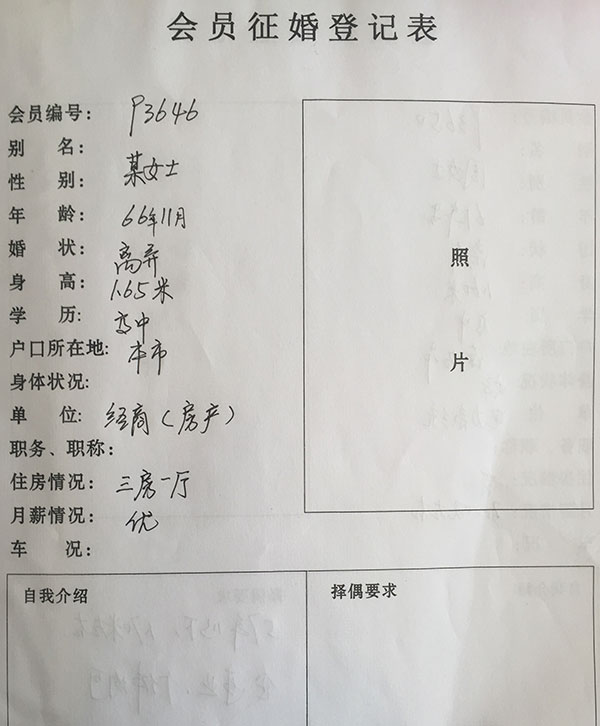 会员征婚登记表
会员编号: P3646
别 名:
性 别: 某女士
年 龄: 66年11月
婚 状: 离异
身 高: 1.65米
学 历: 高中
户口所在地: 本市
身体状况:
单 位: 经商(房产)
职务、职称:
住房情况: 三房一厅
月薪情况: 优
车 况:
照
片
自我介绍
择偶要求